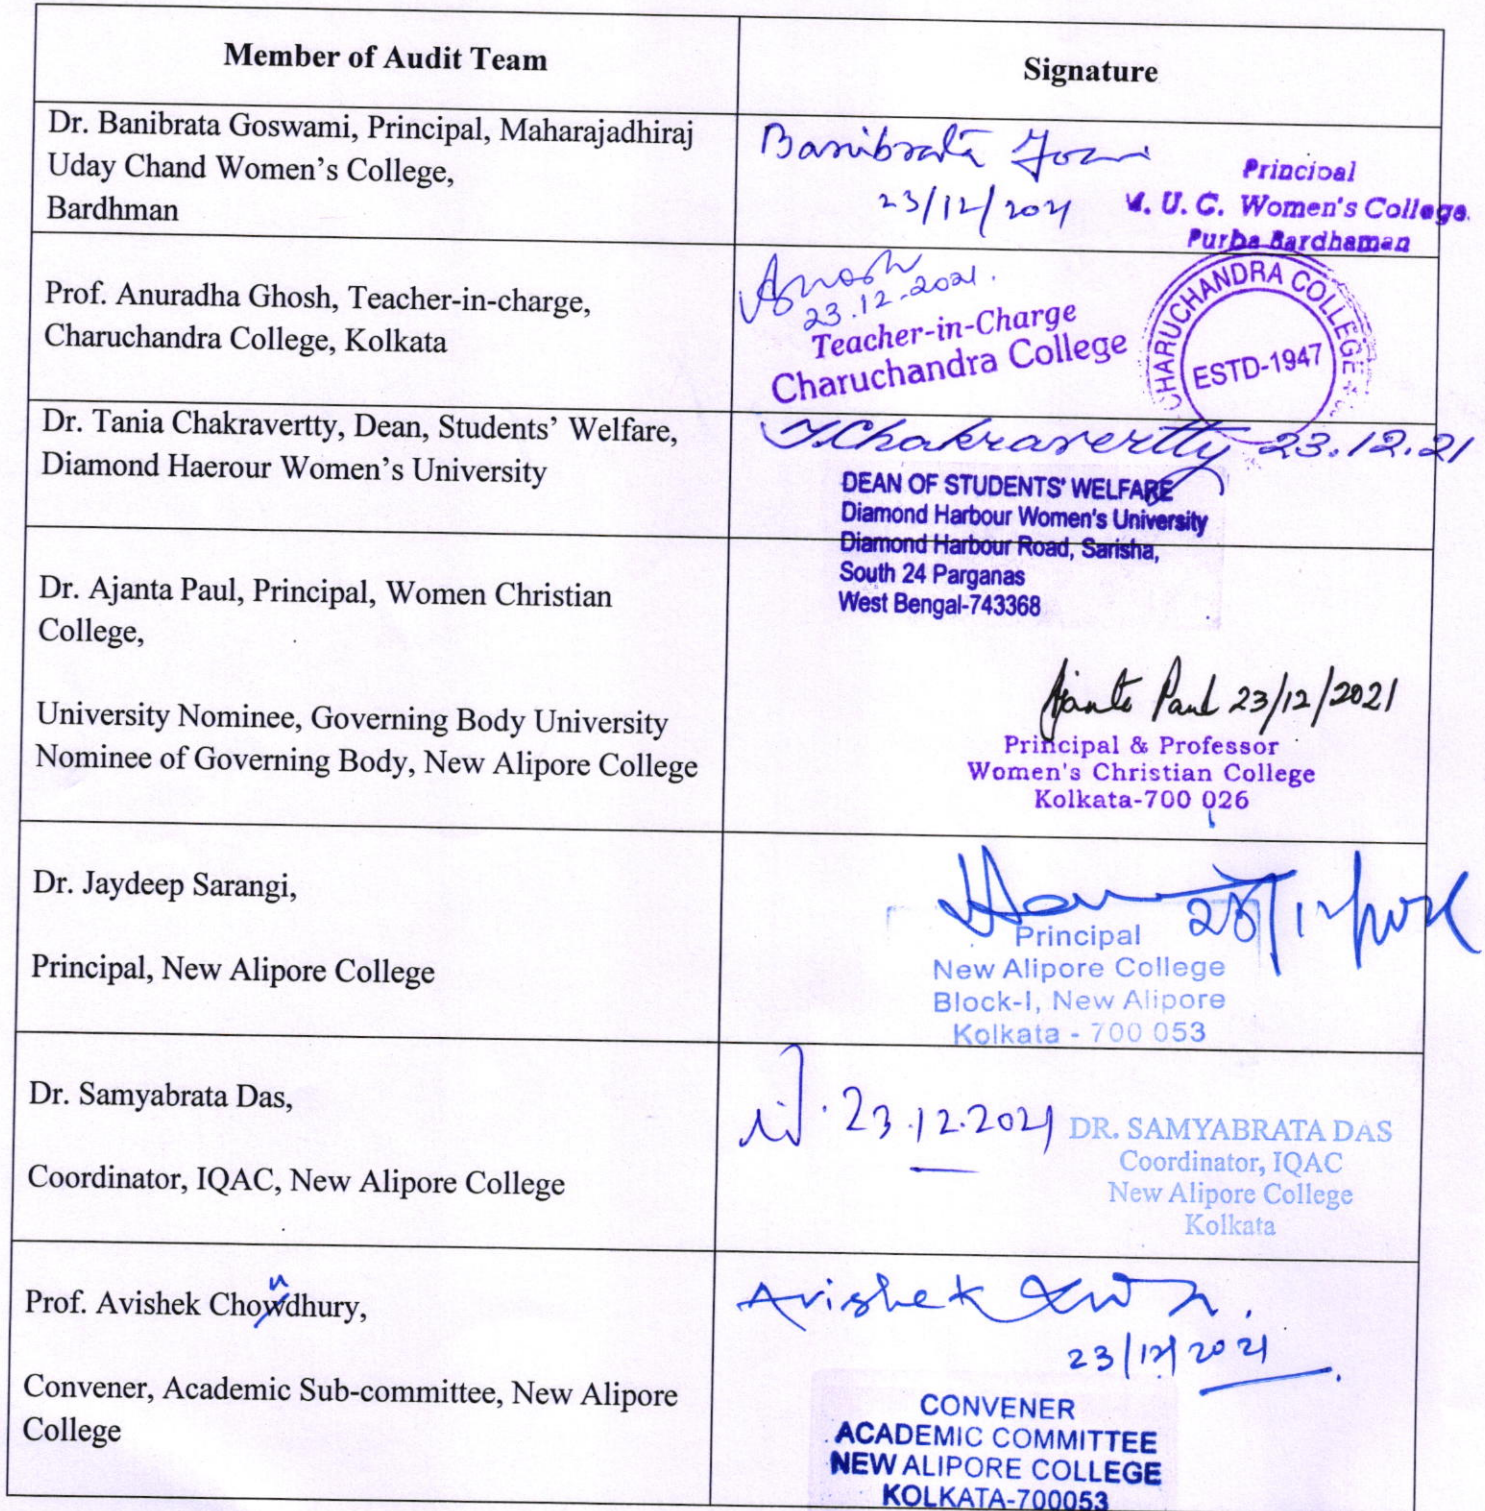 Member of Audit Team
Signature
Dr. Banibrata Goswami, Principal, Maharajadhiraj
Uday Chand Women's College,
Bardhman
Banibrata
23/12/2021
Principal
M. U. C. Women's College.
Purba Bardhaman
Prof. Anuradha Ghosh, Teacher-in-charge,
Charuchandra College, Kolkata
23.12.2021.
Teacher-in-Charge
Charuchandra College
CHARUCHANDRA COLLEGE
ESTD-1947
Dr. Tania Chakravertty, Dean, Students' Welfare,
Diamond Haerour Women's University
TChakravertty 23.12.21
DEAN OF STUDENTS' WELFARE
Diamond Harbour Women's University
Diamond Harbour Road, Sarisha,
South 24 Parganas
West Bengal-743368
Dr. Ajanta Paul, Principal, Women Christian
College,
University Nominee, Governing Body University
Nominee of Governing Body, New Alipore College
Ajanta Paul 23/12/2021
Principal & Professor
Women's Christian College
Kolkata-700 026
Dr. Jaydeep Sarangi,
Principal, New Alipore College
23/12/2021
Principal
New Alipore College
Block-I, New Alipore
Kolkata - 700 053
Dr. Samyabrata Das,
Coordinator, IQAC, New Alipore College
23.12.2021
DR. SAMYABRATA DAS
Coordinator, IQAC
New Alipore College
Kolkata
Prof. Avishek Choudhury,
Convener, Academic Sub-committee, New Alipore
College
Avishek
23/12/2021
CONVENER
ACADEMIC COMMITTEE
NEW ALIPORE COLLEGE
KOLKATA-700053